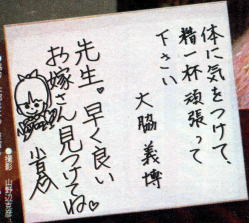 体に気をつけて、
精一杯頑張って
下さい
大脇義博
先生。早く良い
お嫁さん見つけてね♡
●撮影 山野辺克彦